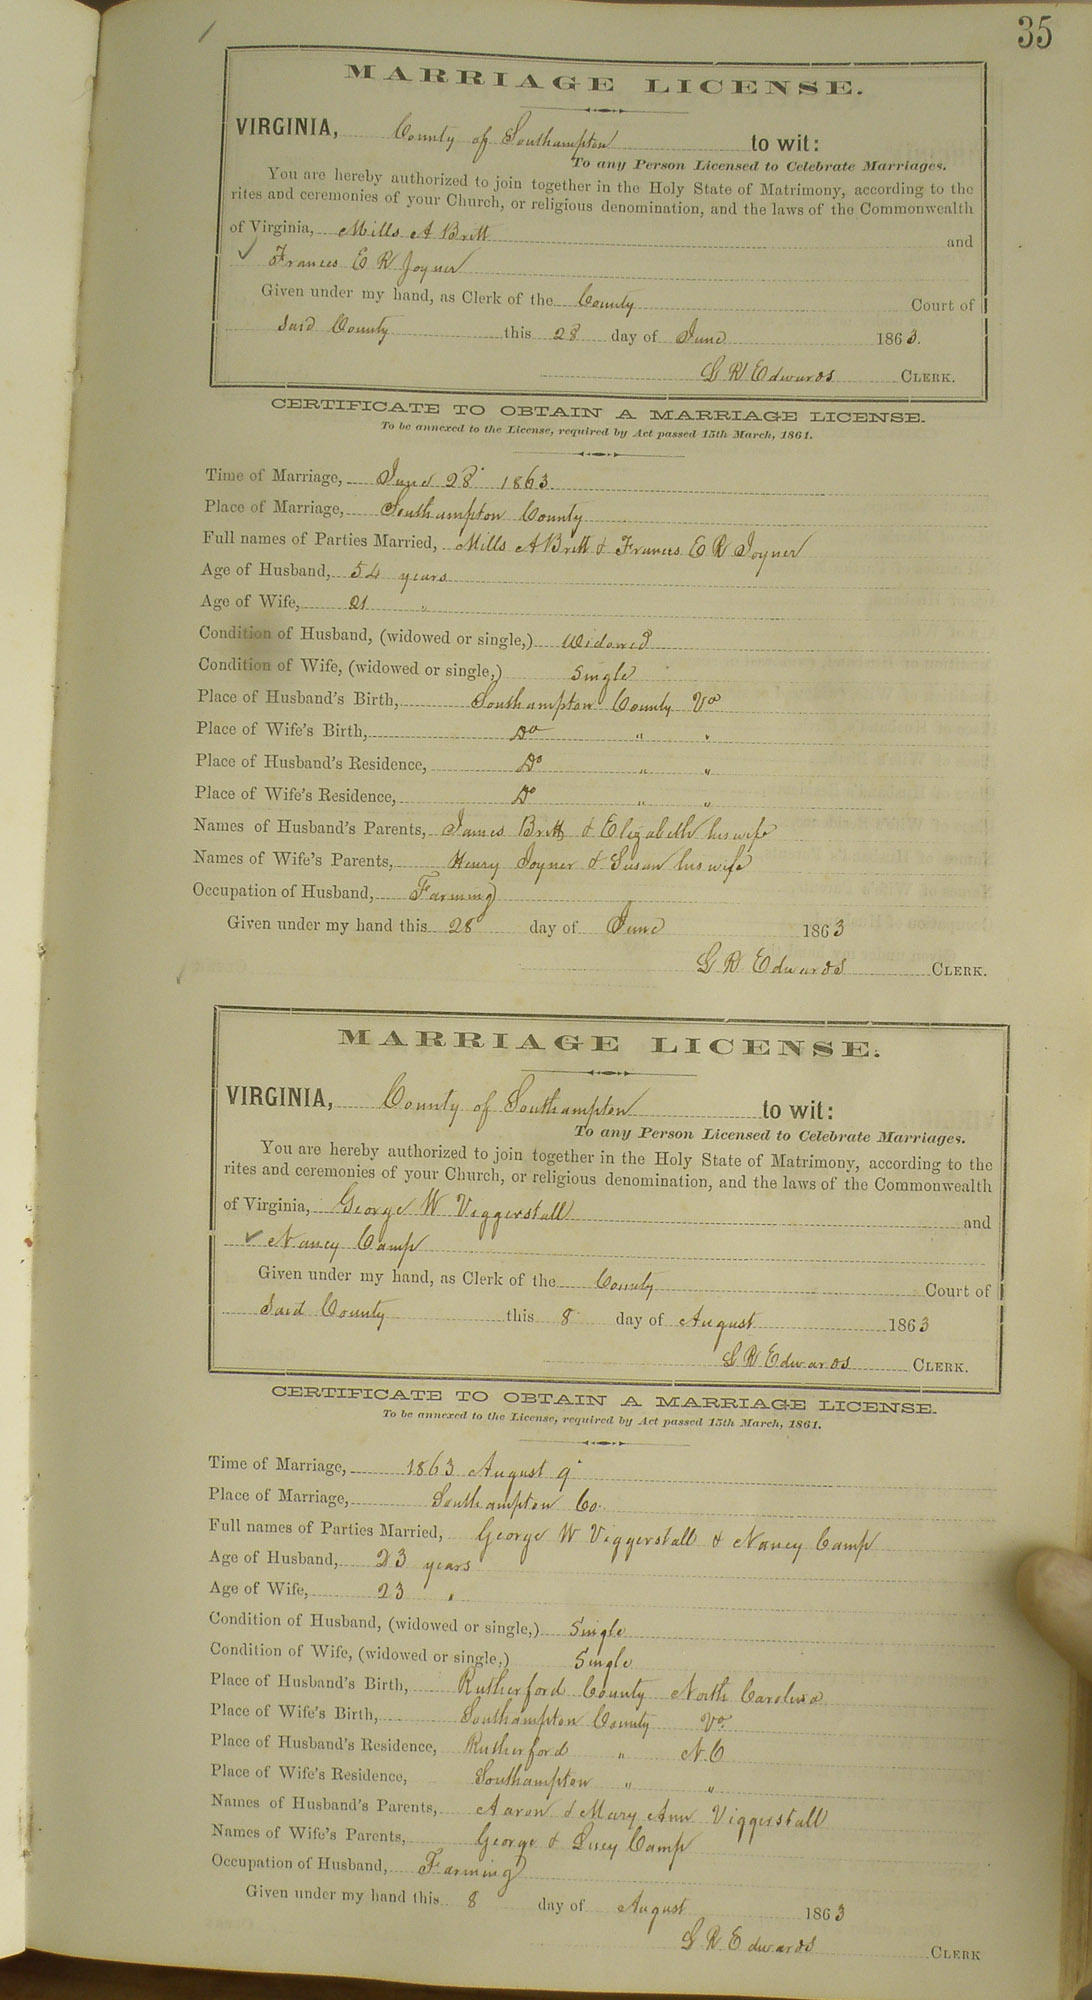 35
MARRIAGE LICENSE.
VIRGINIA, County of Southampton to wit:
To any Person Licensed to Celebrate Marriages.
You are hereby authorized to join together in the Holy State of Matrimony, according to the
rites and ceremonies of your Church, or religious denomination, and the laws of the Commonwealth
of Virginia, Mills A Britt and
Frances E R Joyner
Given under my hand, as Clerk of the County Court of
Said County this 28 day of June 1863.
L R Edwards CLERK.
CERTIFICATE TO OBTAIN A MARRIAGE LICENSE.
To be annexed to the License, required by Act passed 15th March, 1861.
Time of Marriage, June 28 1863
Place of Marriage, Southampton County
Full names of Parties Married, Mills A Britt & Frances E R Joyner
Age of Husband, 54 years
Age of Wife, 21 "
Condition of Husband, (widowed or single,) Widowed
Condition of Wife, (widowed or single,) Single
Place of Husband's Birth, Southampton County Va
Place of Wife's Birth, Do " "
Place of Husband's Residence, Do " "
Place of Wife's Residence, Do " "
Names of Husband's Parents, James Britt & Elizabeth his wife
Names of Wife's Parents, Henry Joyner & Susan his wife
Occupation of Husband, Farming
Given under my hand this 28 day of June 1863
L R Edwards CLERK.
MARRIAGE LICENSE.
VIRGINIA, County of Southampton to wit:
To any Person Licensed to Celebrate Marriages.
You are hereby authorized to join together in the Holy State of Matrimony, according to the
rites and ceremonies of your Church, or religious denomination, and the laws of the Commonwealth
of Virginia, George W Viggerstall and
Nancy Camp
Given under my hand, as Clerk of the County Court of
Said County this 8 day of August 1863
L R Edwards CLERK.
CERTIFICATE TO OBTAIN A MARRIAGE LICENSE.
To be annexed to the License, required by Act passed 15th March, 1861.
Time of Marriage, 1863 August 9
Place of Marriage, Southampton Co.
Full names of Parties Married, George W Viggerstall & Nancy Camp
Age of Husband, 23 years
Age of Wife, 23 "
Condition of Husband, (widowed or single,) Single
Condition of Wife, (widowed or single,) Single
Place of Husband's Birth, Rutherford County North Carolina
Place of Wife's Birth, Southampton County Va.
Place of Husband's Residence, Rutherford " N.C
Place of Wife's Residence, Southampton " "
Names of Husband's Parents, Aaron & Mary Ann Viggerstall
Names of Wife's Parents, George & Lucy Camp
Occupation of Husband, Farming
Given under my hand this 8 day of August 1863
L R Edwards CLERK